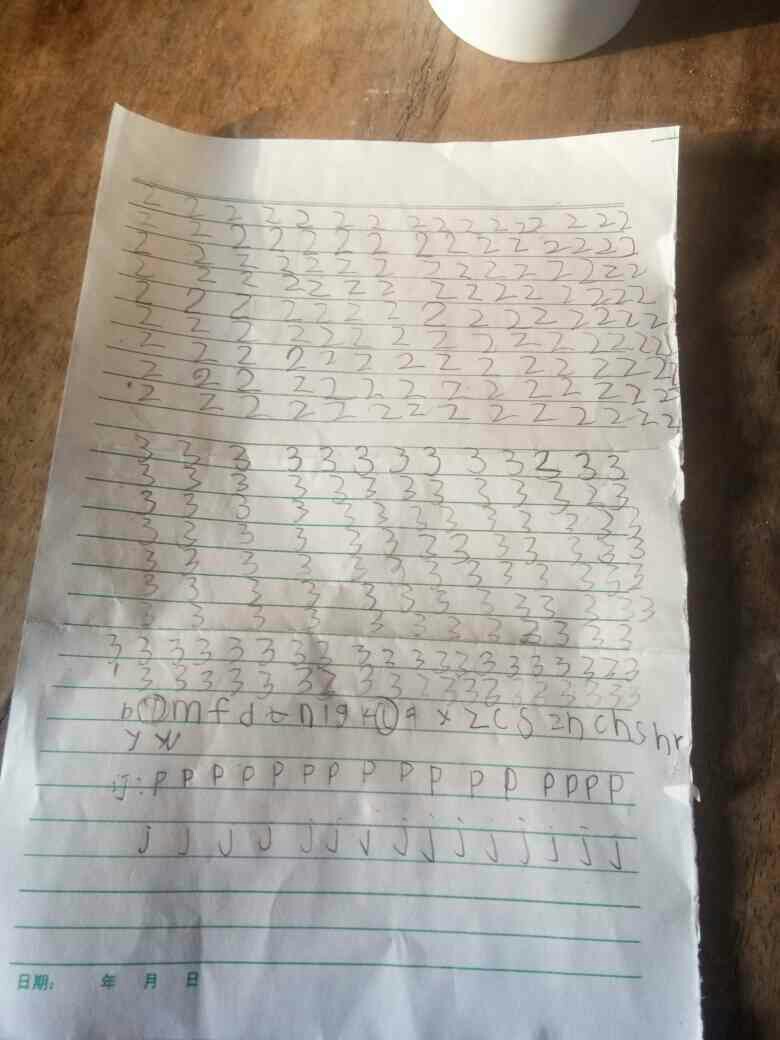 2 2 2 2 2 2 2 2 2 2 2 2 2 2 2 2
2 2 2 2 2 2 2 2 2 2 2 2 2 2 2 2
2 2 2 2 2 2 2 2 2 2 2 2 2 2 2 2
2 2 2 2 2 2 2 2 2 2 2 2 2 2 2 2
2 2 2 2 2 2 2 2 2 2 2 2 2 2 2 2
2 2 2 2 2 2 2 2 2 2 2 2 2 2 2 2
2 2 2 2 2 2 2 2 2 2 2 2 2 2 2 2
2 2 2 2 2 2 2 2 2 2 2 2 2 2 2
2 2 2 2 2 2 2 2 2 2 2 2 2 2 2
3 3 3 3 3 3 3 3 3 3 2 3 3
3 3 3 3 3 3 3 3 3 3 3 2 3
3 3 3 3 3 3 3 3 3 3 3 3 3
3 2 3 3 3 3 2 3 3 3 3 3 3
3 3 3 3 3 3 3 3 3 3 3 3 3
3 3 3 3 3 3 3 3 3 3 3 3 3
3 3 3 3 3 3 3 3 2 3 3 3
3 3 3 3 3 3 3 3 3 3 3 3 2 3 3 3 3 3 2 3
3 3 3 3 3 3 2 3 3 2 3 3 3 3 2 3 3 3 3
b m f d t n l g k q x z c s zh ch sh r
y w
ij: p p p p p p p p p p p p p p p p
j j j j j j j j j j j j j j j
日期: 年 月 日